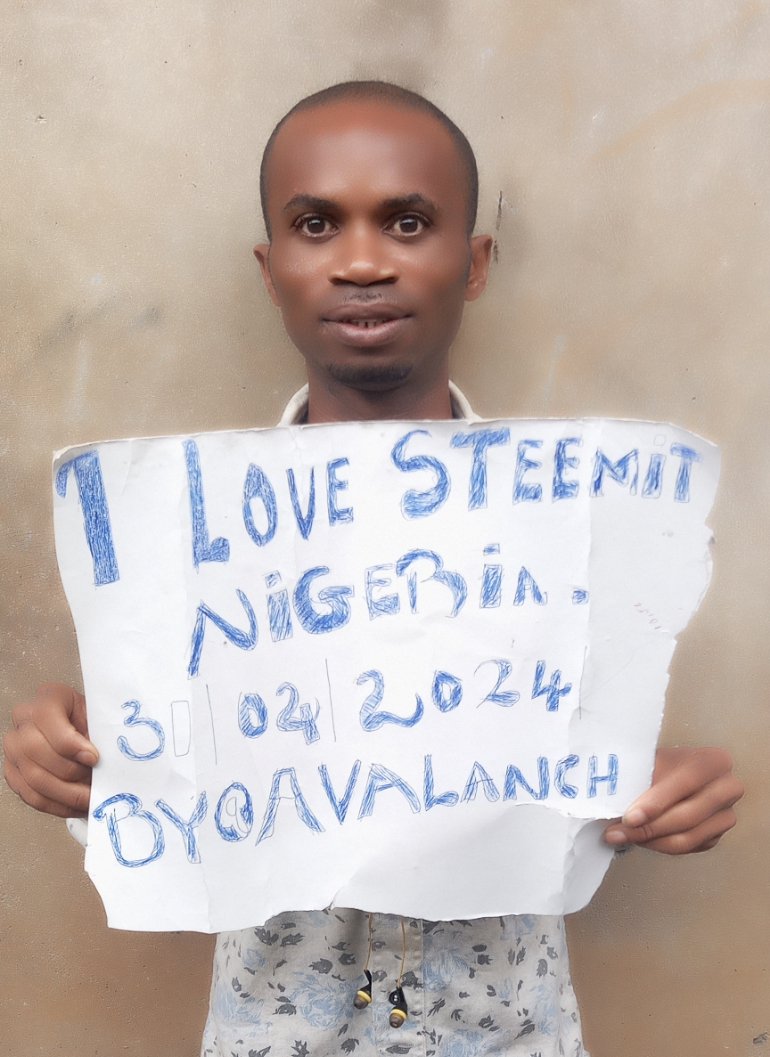 1 LOVE STEEMiT
NiGERiA.
30|04|2024
BY@AVALANCH